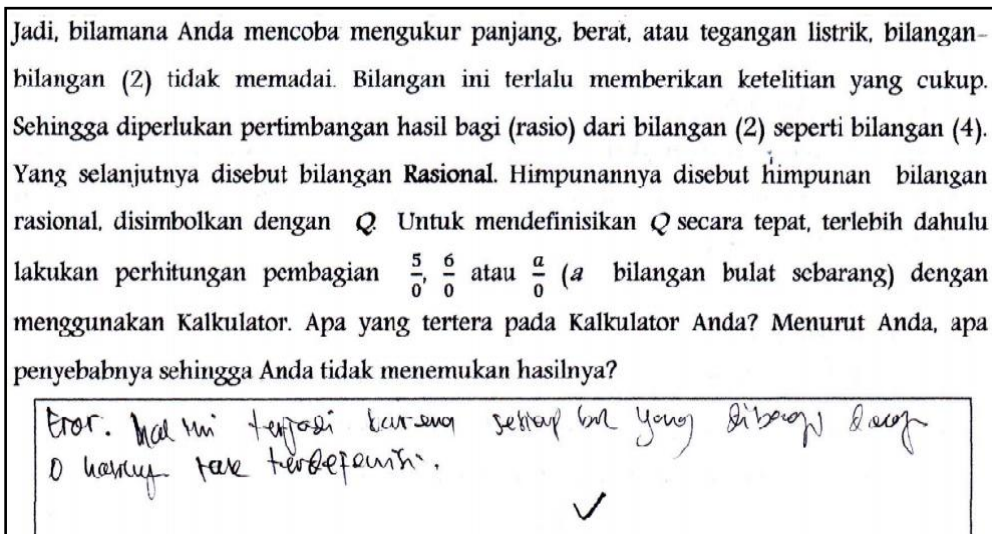 Jadi, bilamana Anda mencoba mengukur panjang, berat, atau tegangan listrik, bilangan-
bilangan (2) tidak memadai. Bilangan ini terlalu memberikan ketelitian yang cukup.
Sehingga diperlukan pertimbangan hasil bagi (rasio) dari bilangan (2) seperti bilangan (4).
Yang selanjutnya disebut bilangan Rasional. Himpunannya disebut himpunan bilangan
rasional, disimbolkan dengan Q. Untuk mendefinisikan Q secara tepat, terlebih dahulu
lakukan perhitungan pembagian 5/0, 6/0 atau a/0 (a bilangan bulat sebarang) dengan
menggunakan Kalkulator. Apa yang tertera pada Kalkulator Anda? Menurut Anda, apa
penyebabnya sehingga Anda tidak menemukan hasilnya?
Eror. hal ini terjadi karena setiap bil yang dibagi
0 hasilnya tak terdefenisi.